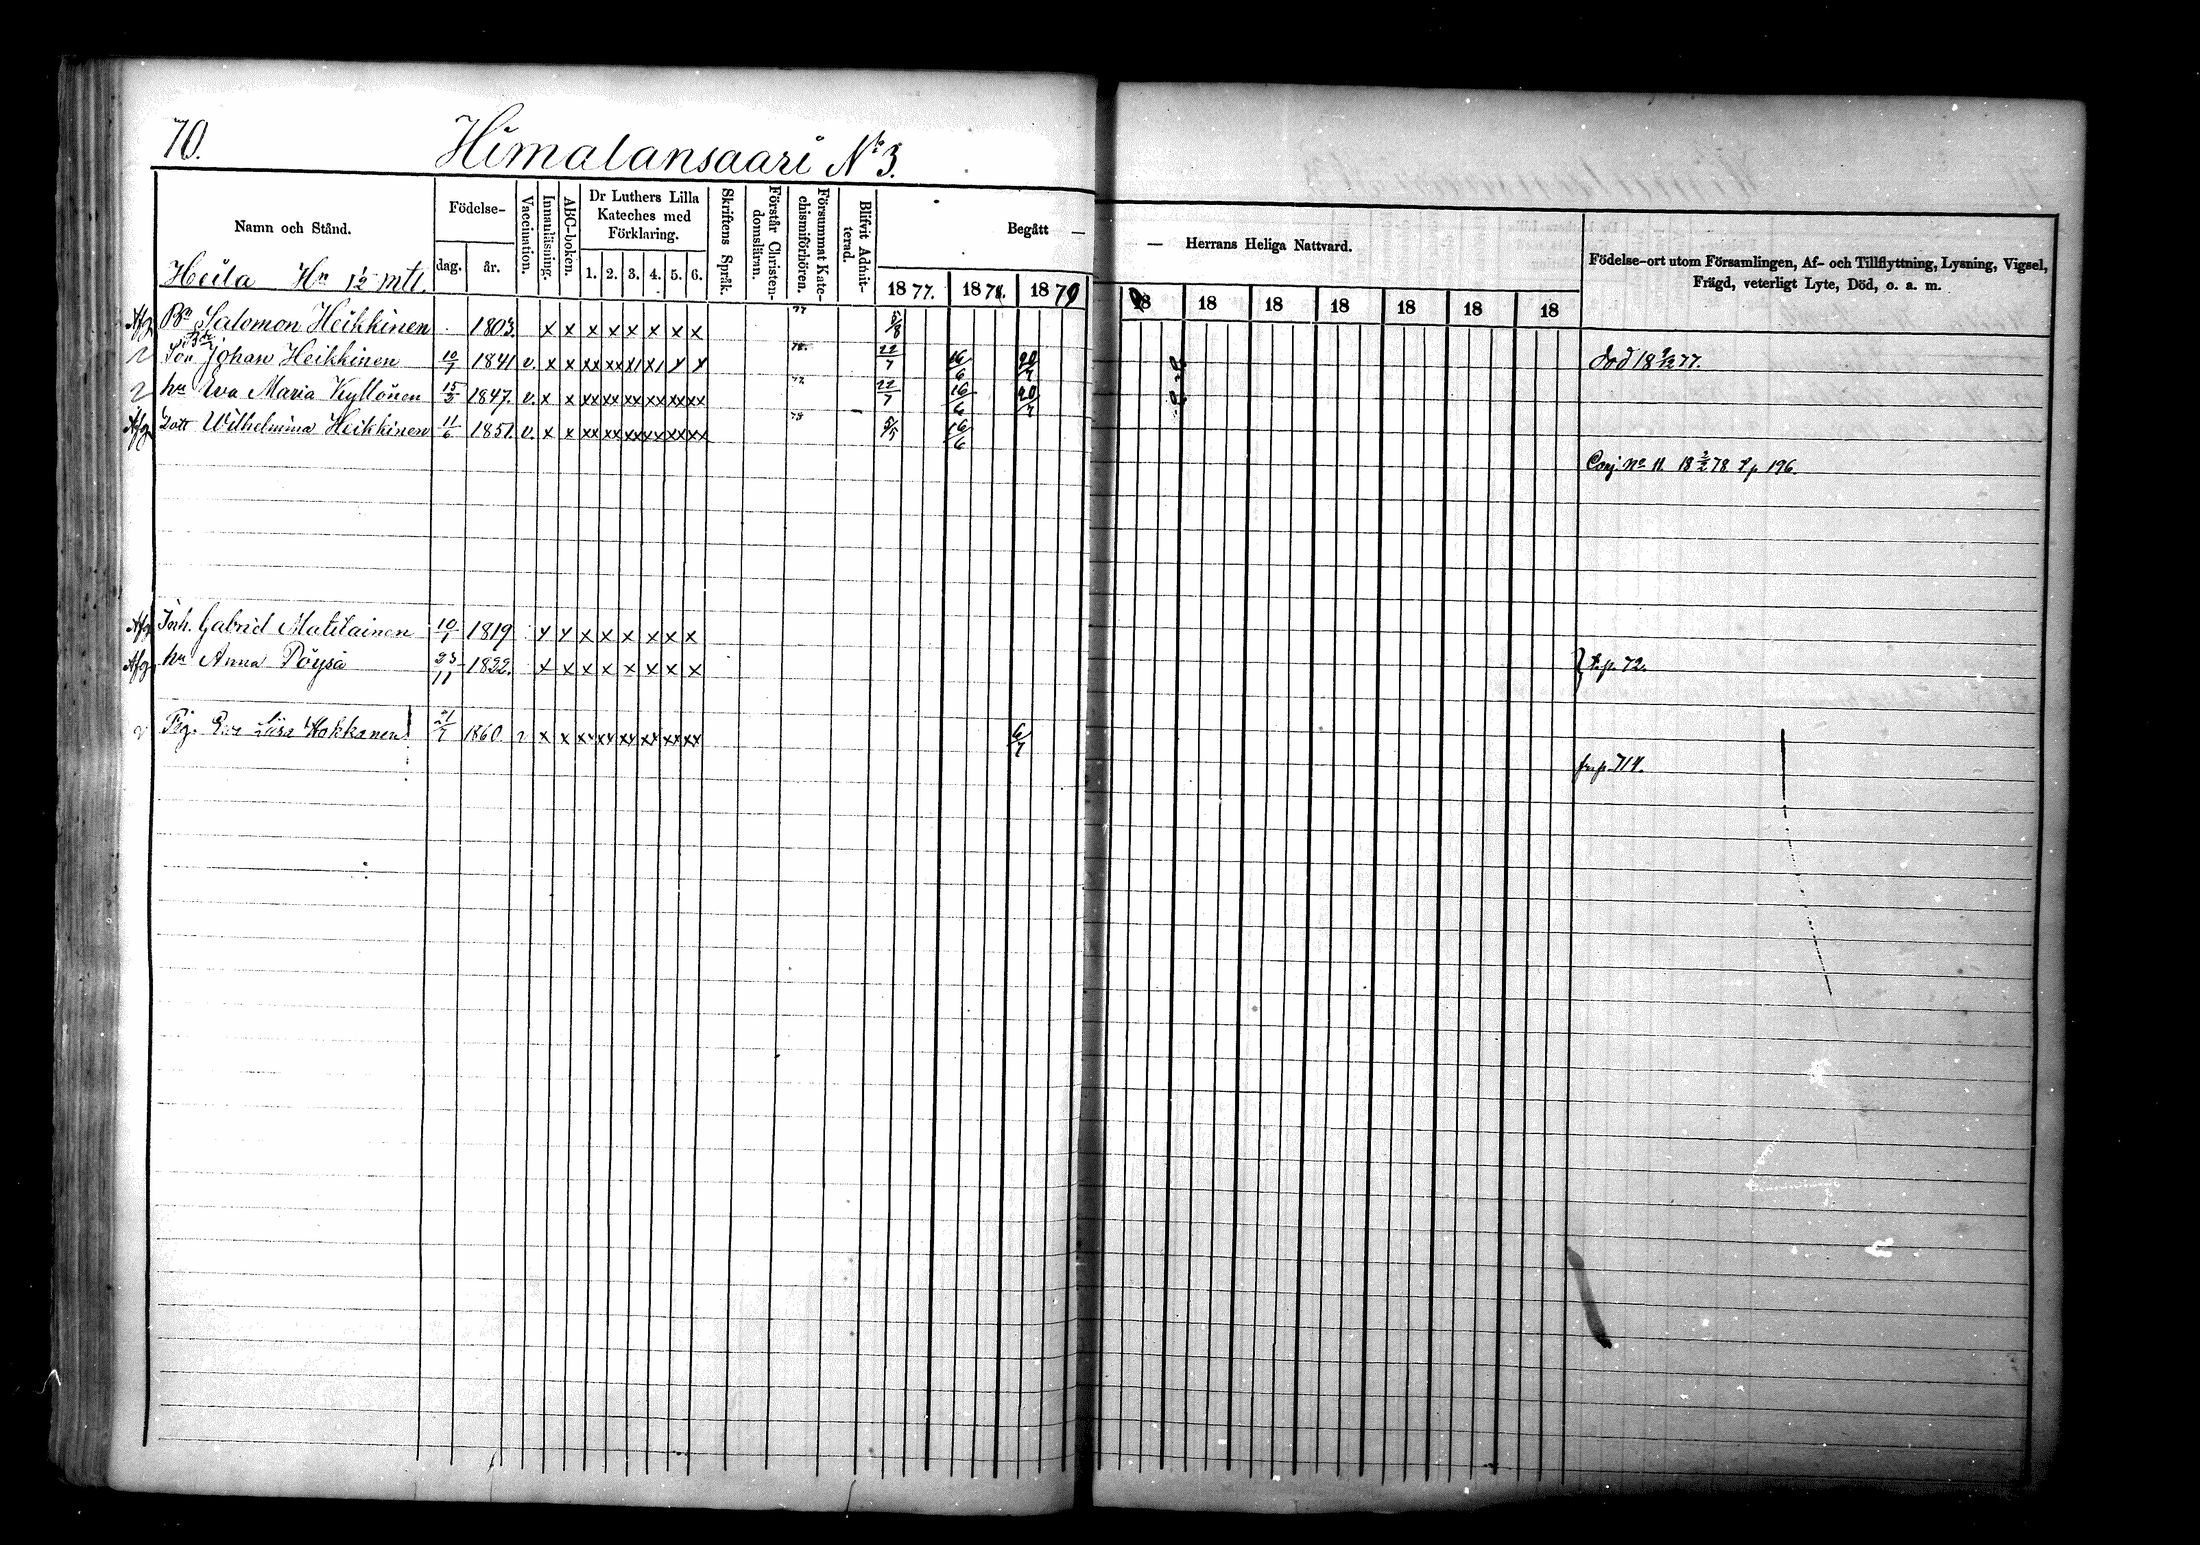 70.
Himalansaari No 3.
Namn och Stånd.
Födelse-
dag.
år.
Vaccination.
Innanläsning.
ABC-boken.
Dr Luthers Lilla
Kateches med
Förklaring.
1. 2. 3. 4. 5. 6.
Skriftens Språk.
Förstår Christen-
domsläran.
Försummat Kate-
chismiförhören.
Blifvit Admit-
terad.
Begått —
— Herrans Heliga Nattvard.
1877. 1878. 1879 18 18 18 18 18 18 18
Födelse-ort utom Församlingen, Af- och Tillflyttning, Lysning, Vigsel,
Frägd, veterligt Lyte, Död, o. a. m.
Heila Hn 1/2 mtl.
Afg Bn Salomon Heikkinen 1803 x x x x x x x x 77 5/8
Son Johan Heikkinen 10/7 1841 v. x x xx xx x1 x1 x x 78 22/7 16/6 20/7 död 18 9/12 77.
hu Eva Maria Kyllönen 15/2 1847. v. x x xx xx xx xx xx xx 77 22/7 16/6 20/7
Afg Dott Wilhelmina Heikkinen 11/6 1851. v. x x xx xx xx xx xx xx 78 5/5 16/6
Conj. no 11 18 3/2 78 t.p 196.
Afg Inh. Gabriel Matilainen 10/1 1819 x x x x x x x x
Afg hu Anna Pöysä 23/11 1822. x x x x x x x x t.p. 72.
Pig. Eva Liisa Hokkanen 21/7 1860 v x x xx xx xx xx xx xx 6/7
fr.p. 714.